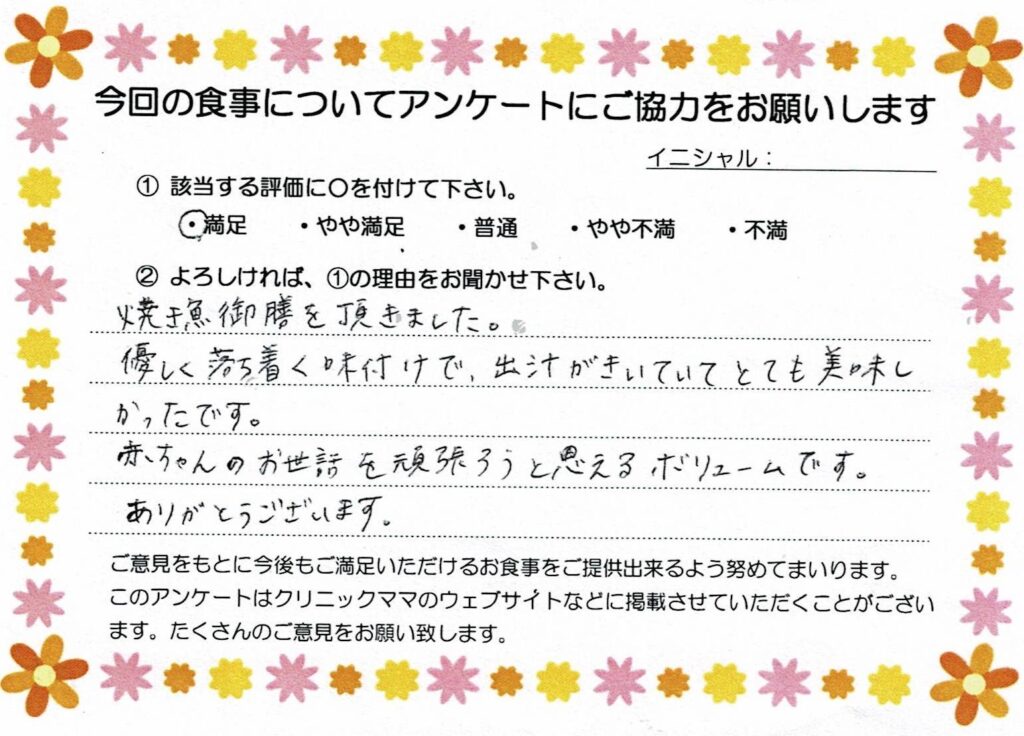 今回の食事についてアンケートにご協力をお願いします
イニシャル：
① 該当する評価に〇を付けて下さい。
・満足 ・やや満足 ・普通 ・やや不満 ・不満
② よろしければ、①の理由をお聞かせ下さい。
焼き魚御膳を頂きました。
優しく落ち着く味付けで、出汁がきいていてとても美味し
かったです。
赤ちゃんのお世話を頑張ろうと思えるボリュームです。
ありがとうございます。
ご意見をもとに今後もご満足いただけるお食事をご提供出来るよう努めてまいります。
このアンケートはクリニックママのウェブサイトなどに掲載させていただくことがござい
ます。たくさんのご意見をお願い致します。